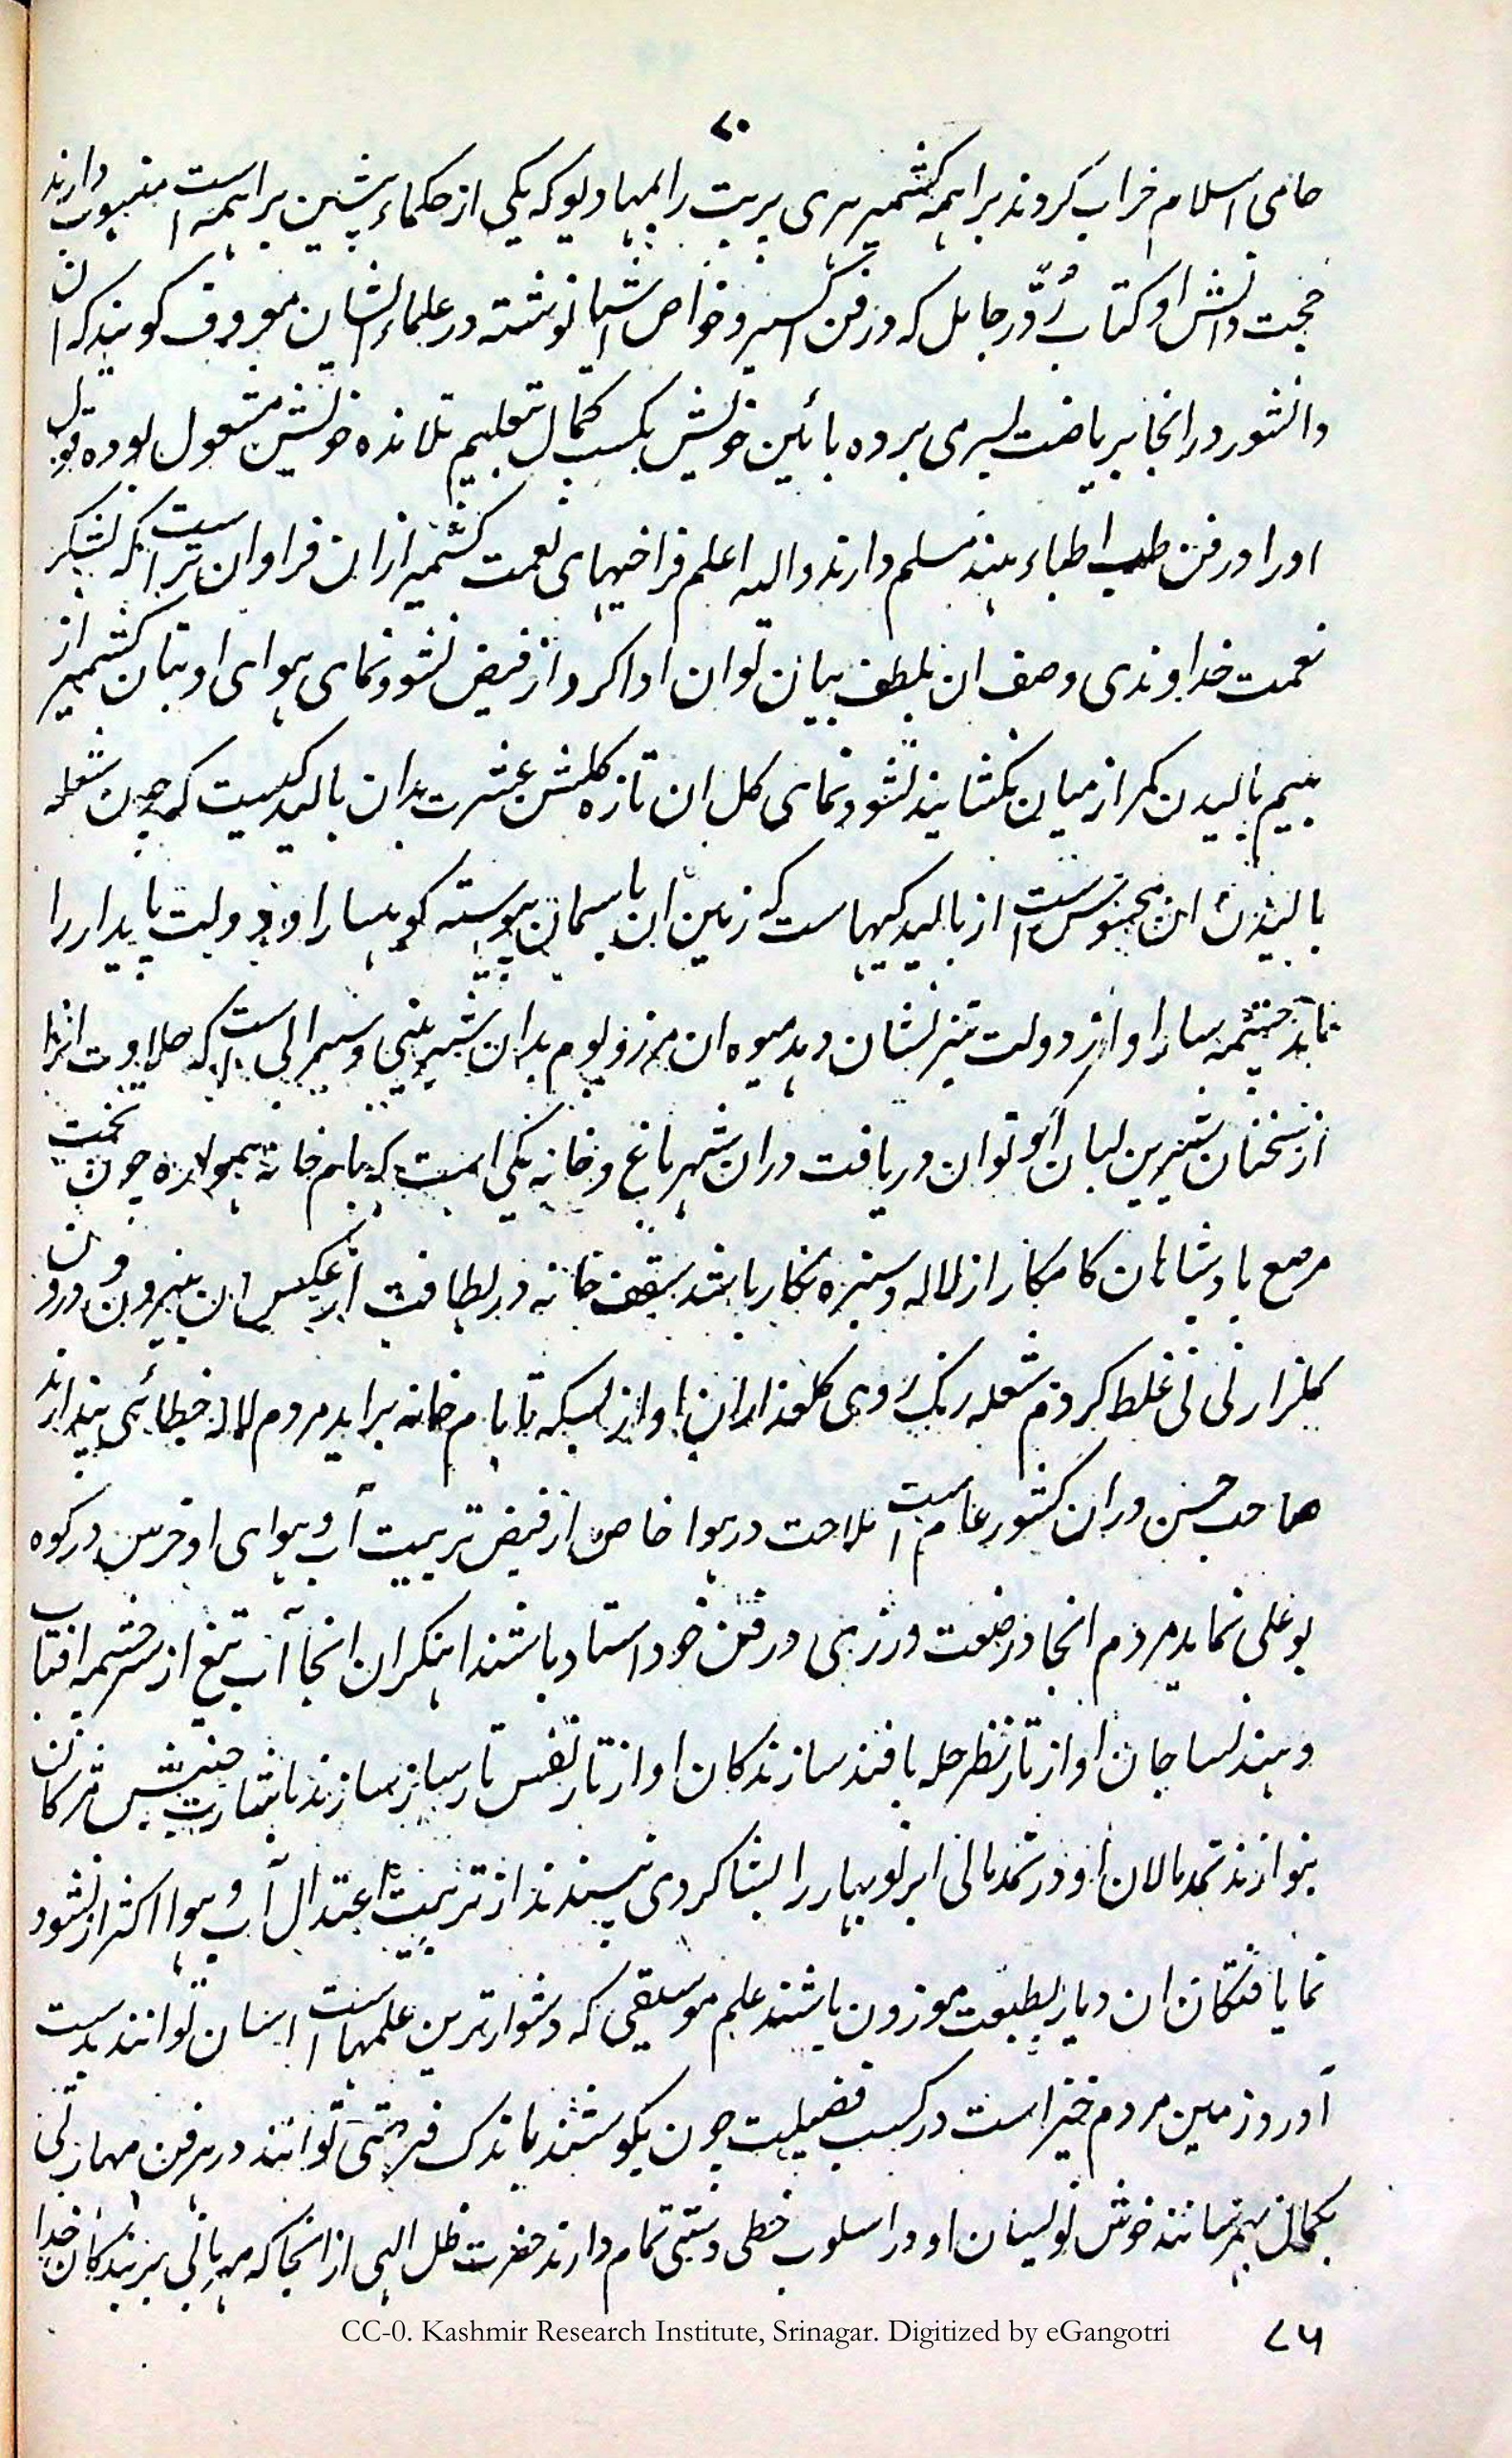 ۷۰
حامی اسلام خراب کردند براهمه کشمیر هری پربت را بمهادیو که یکی از حکماء پیشین براهمه است منسوب دارند
حجت دانش او کتاب که در فن اکسیر و خواص اشیا نوشته در علماء ایشان معروف کویند که ان
دانشور در انجا بریاضت بسر می برده بائین خویش بکسب کمال و تعلیم تلامذه خویش مشغول بوده قول
او را در فن طب اطباء هند مسلم دارند والله اعلم فراخیهای نعمت کشمیر ازان فراوان تر است که بشکر
نعمت خداوندی وصف ان بلطف بیان توان ادا کرد از فیض نشو و نمای هوای او بتان کشمیر از
بیم بالیدن کمر از میان نکشایند نشو و نمای کل ان تازه کلشن عشرت بدان بالیدکیست که چون شعله
بالیدن ان محسوس است از بالیدکیهاست که زمین ان باسمان پیوسته کوهسار او دولت پایدار را
ماند چشمه سار او از دولت تیز نشان دهد میوه ان مرز و بوم بدان شیرینی و سیرابی است که حلاوت انرا
از سخنان شیرین لبان او توان دریافت دران شهر باغ و خانه یکی است که بام خانه همواره چون تخت
مرصع بادشاهان کامکار از لاله و سبزه نکار باشد سقف خانه در لطافت از عکس ان بیرون و درون
کلزار نی نی غلط کردم شعله رنک روی کلعذاران او از بسکه تا بام خانه براید مردم لاله خطائی پندارند
صاحب حسن دران کشور عام است ملاحت در هوا خاص از فیض تربیت آب و هوای او خرس در کوه
بوعلی نماید مردم انجا در صنعت ورزی در فن خود استاد باشند اهنکران انجا آب تیغ از سرچشمه افتاب
دهند نساجان او از تار نظر حله بافند سازندکان او از تار نفس تار ساز سازند باشارت جنبش مژکان
بنوازند نمدمالان او در نمدمالی ابر نوبهار را بشاکردی نپسندند از تربیت اعتدال آب و هوا اکثر از نشو و
نما یافتکان ان دیار بطبیعت موزون باشند علم موسیقی که دشوارترین علمهاست اسان توانند بدست
آورد زمین مردم خیز است در کسب فضیلت چون بکوشند باندک فرصتی توانند در هر فن مهارتی
بکمال بهمرسانند خوش نویسان او در اسلوب خطی دستی تمام دارند حضرت ظل الهی از انجا که مهربانی بر بندکان خدا
CC-0. Kashmir Research Institute, Srinagar. Digitized by eGangotri
۷۵